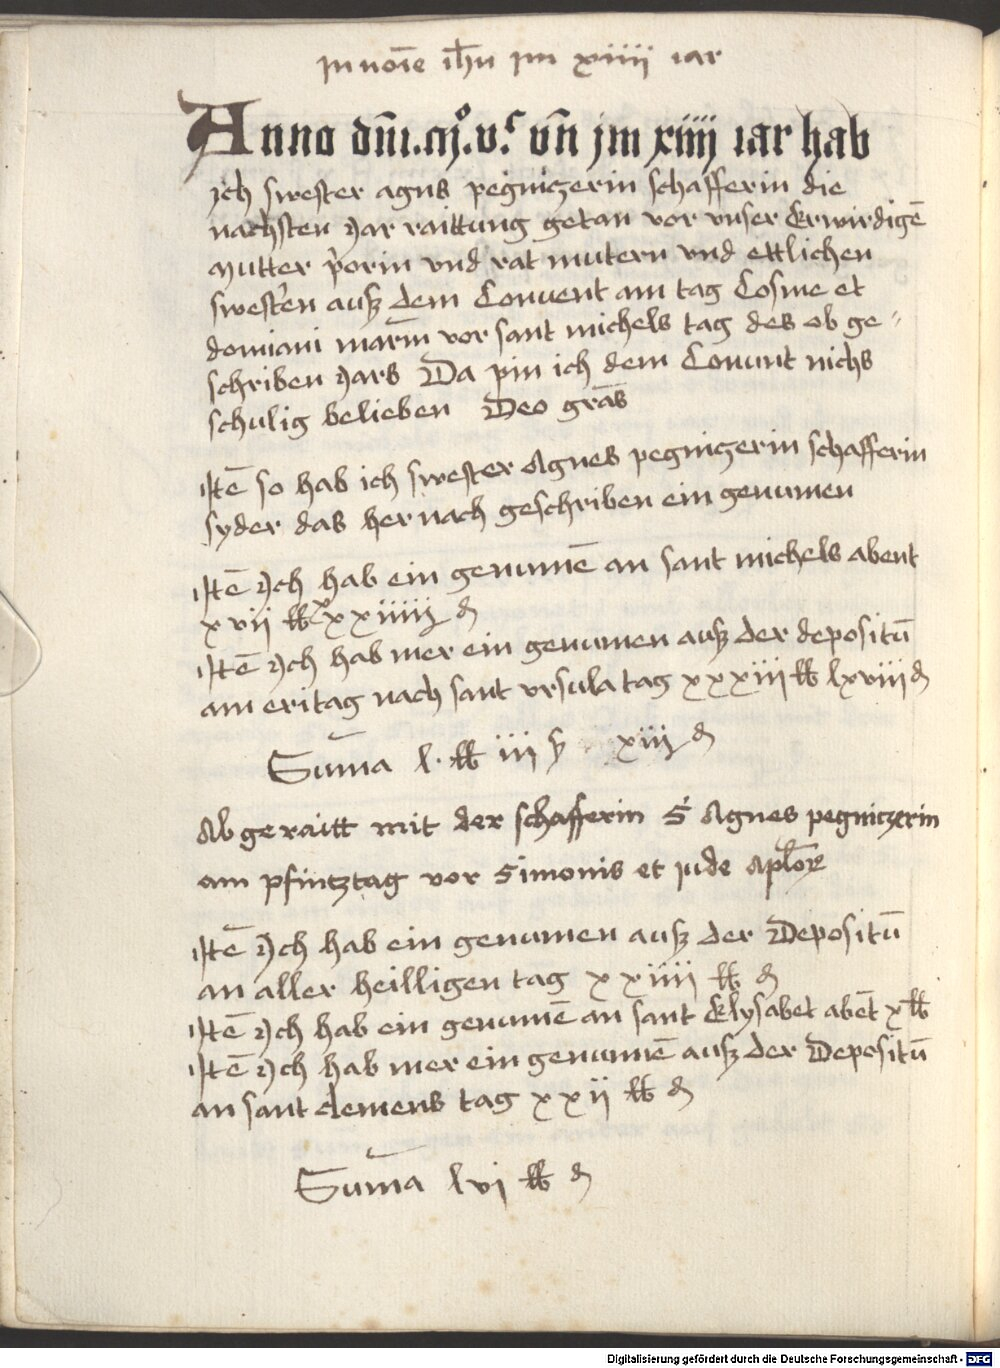 In noīe ih̄u im xiiii iar
Anno dn̄i.mͦ.vᶜ vn̄ jm xiiij iar hab
Ich swester agnes pegniczerin schafferin die
nachsten Jar raittung getan vor vnser Erwirdigē
Mutter p̄orin vnd rat mutern vnd ettlichen
swest̄en ausz dem Conuent am tag Cosme et
domiani mar̄m vor sant michels tag des ob ge⸗
schriben Jars Da pin ich dem Conunt nichs
schulig beliben Deo grās
Itē so hab ich swester Agnes pegniczerin schafferin
syder das her nach geschriben ein genumen
Itē Ich hab ein genumē an sant michels abent
xvii ℔ xxiiiij ₰
Itē Ich hab mer ein genumen ausz der depositū
am eritag nach sant vrsula tag xxxiii ℔ lxviii ₰
Sum̄a l. ℔ iii ß xiij ₰
Ab geraitt mit der schafferin S Agnes pegniczerin
am pfintztag vor Simonis et jude apl̄oꝝ
Itē Ich hab ein genumen ausz der Depositū
an aller heilligen tag xxiiii ℔ ₰
Itē Ich hab ein genumē an sant Elysabet abēt x ℔
Itē Ich hab mer ein genumē ausz der Depositū
an sant clemens tag xxii ℔ ₰
Sum̄a lvi ℔ ₰
Digitalisierung gefördert durch die Deutsche Forschungsgemeinschaft - DFG